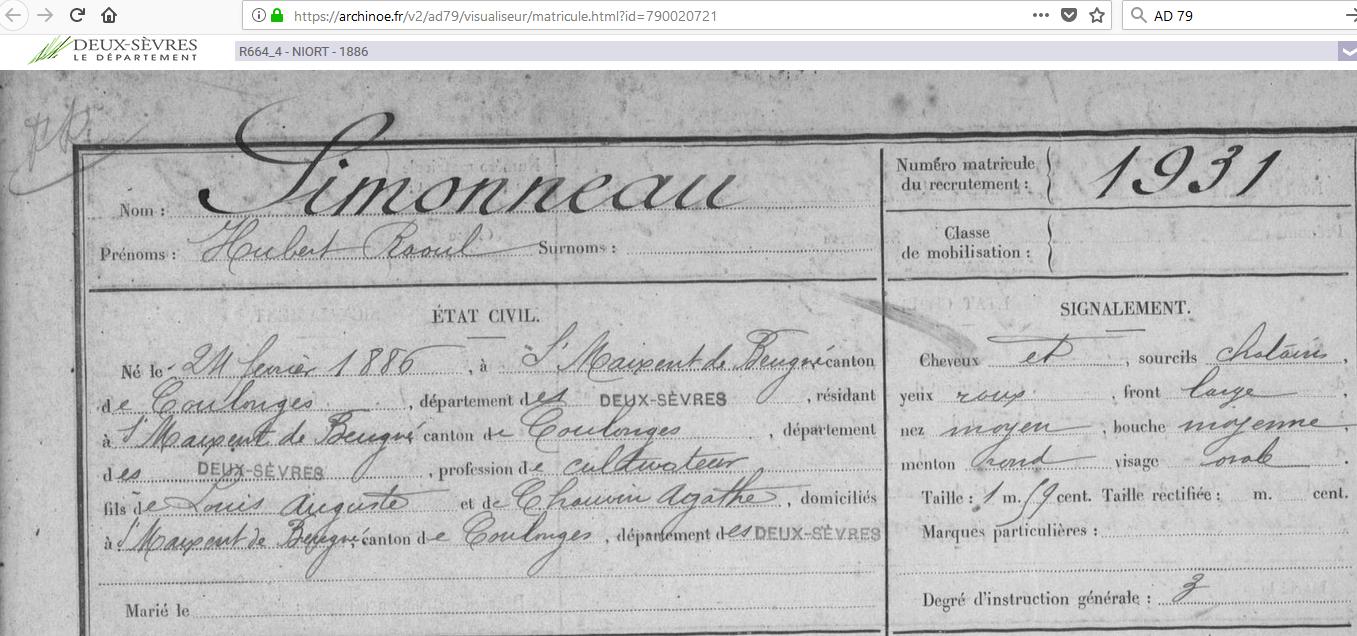 https://archinoe.fr/v2/ad79/visualiseur/matricule.html?id=790020721
AD 79
DEUX-SÈVRES
LE DÉPARTEMENT
R664_4 - NIORT - 1886
Nom : Simonneau
Prénoms : Hubert Raoul Surnoms :
Numéro matricule
du recrutement : 1931
Classe
de mobilisation :
ÉTAT CIVIL.
Né le 24 février 1886, à St Maixent de Beugné canton
de Coulonges, département des DEUX-SÈVRES, résidant
à St Maixent de Beugné canton de Coulonges, département
des DEUX-SÈVRES, profession de cultivateur
fils de Louis Auguste et de Chauvin Agathe, domiciliés
à St Maixent de Beugné canton de Coulonges, département des DEUX-SÈVRES
Marié le
SIGNALEMENT.
Cheveux et, sourcils chatains,
yeux roux, front large,
nez moyen, bouche moyenne,
menton rond visage ovale.
Taille : 1 m. 59 cent. Taille rectifiée : m. cent.
Marques particulières :
Degré d'instruction générale : 3